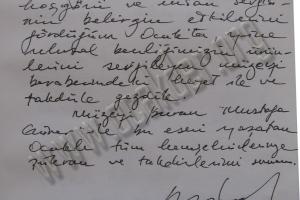 hoşgörü ve insan sevgi-
nin belirgin etkilerini
gördüğüm Ocakta yine
ulusal benliğimizin
lerini sergileyen müzeyi
beraberimdeki heyet ile ve
takdirle gezdik
Müzeyi kuran Mustafa
ile bu eseri yaşatan
Ocaklı tüm hemşehrilerime
şükran ve takdirlerimi sunarım.